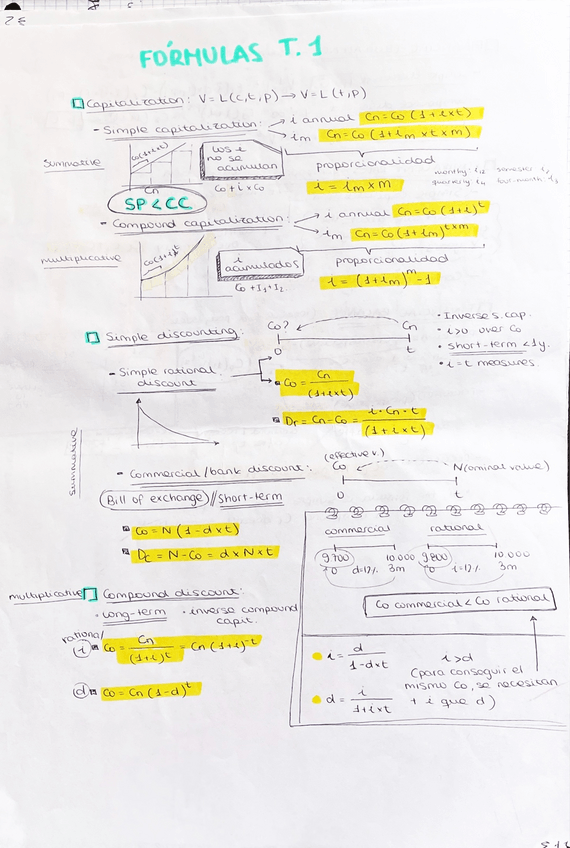 FÓRMULAS T.1
Capitalization: V=L(c,t,p) → V=L(t,p)
- Simple capitalization: → i annual Cn=Co(1+i×t)
→ im Cn=Co(1+im×t×m)
summative
Co(1+i×t)
Cn
los i
no se
acumulan
Co+i×Co
proporcionalidad
i = im×m
monthly i12 semester i2
quarterly i4 four-month i3
SP<CC
- Compound capitalization: → i annual Cn=Co(1+i)^t
→ im Cn=Co(1+im)^t×m
multiplicative
Co(1+i)^t
i
acumulados
Co+I1+I2
proporcionalidad
i = (1+im)^m -1
Simple discounting:
Co? Cn
0 t
• Inverse s. cap.
• i>0 over Co
• short-term <1y.
• i=t measures.
- Simple rational
discount
Co = Cn/(1+i×t)
Dr = Cn-Co = i·Cn·t/(1+i×t)
summative
- Commercial/bank discount:
(effective v.)
Co N(ominal value)
0 t
Bill of exchange // short-term
Co=N(1-d×t)
Dc = N-Co = d×N×t
commercial rational
9.700 10.000 9.800 10.000
0 d=12% 3m 0 i=12% 3m
Co commercial < Co rational
multiplicative Compound discount:
• long-term • inverse compound
capit.
rational
i Co = Cn/(1+i)^t = Cn(1+i)^-t
d Co = Cn(1-d)^t
i = d/1-d×t
d = i/1+i×t
i>d
(para conseguir el
mismo Co, se necesitan
+ i que d)